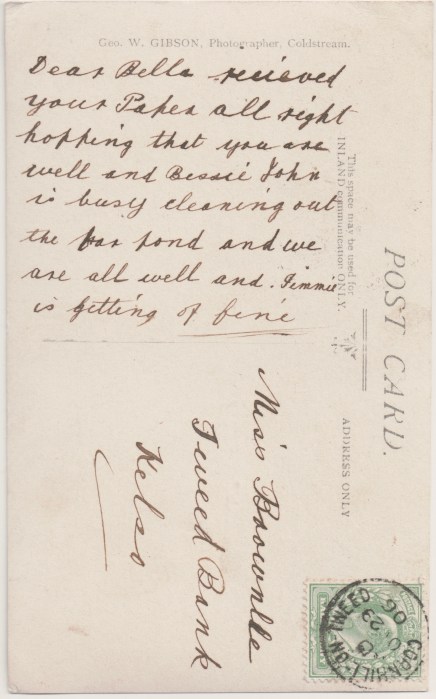 Geo. W. GIBSON, Photographer, Coldstream.
Dear Bella recieved
your Paper all right
hopping that you are
well and Bessie John
is busy cleaning out
the pond and we
are all well and. Jimmie
is getting of fine
POST CARD.
This space may be used for
INLAND communication ONLY.
ADDRESS ONLY
Miss Brownlee
Tweed Bank
Kelso
CORNHILL-ON-TWEED
OC 29